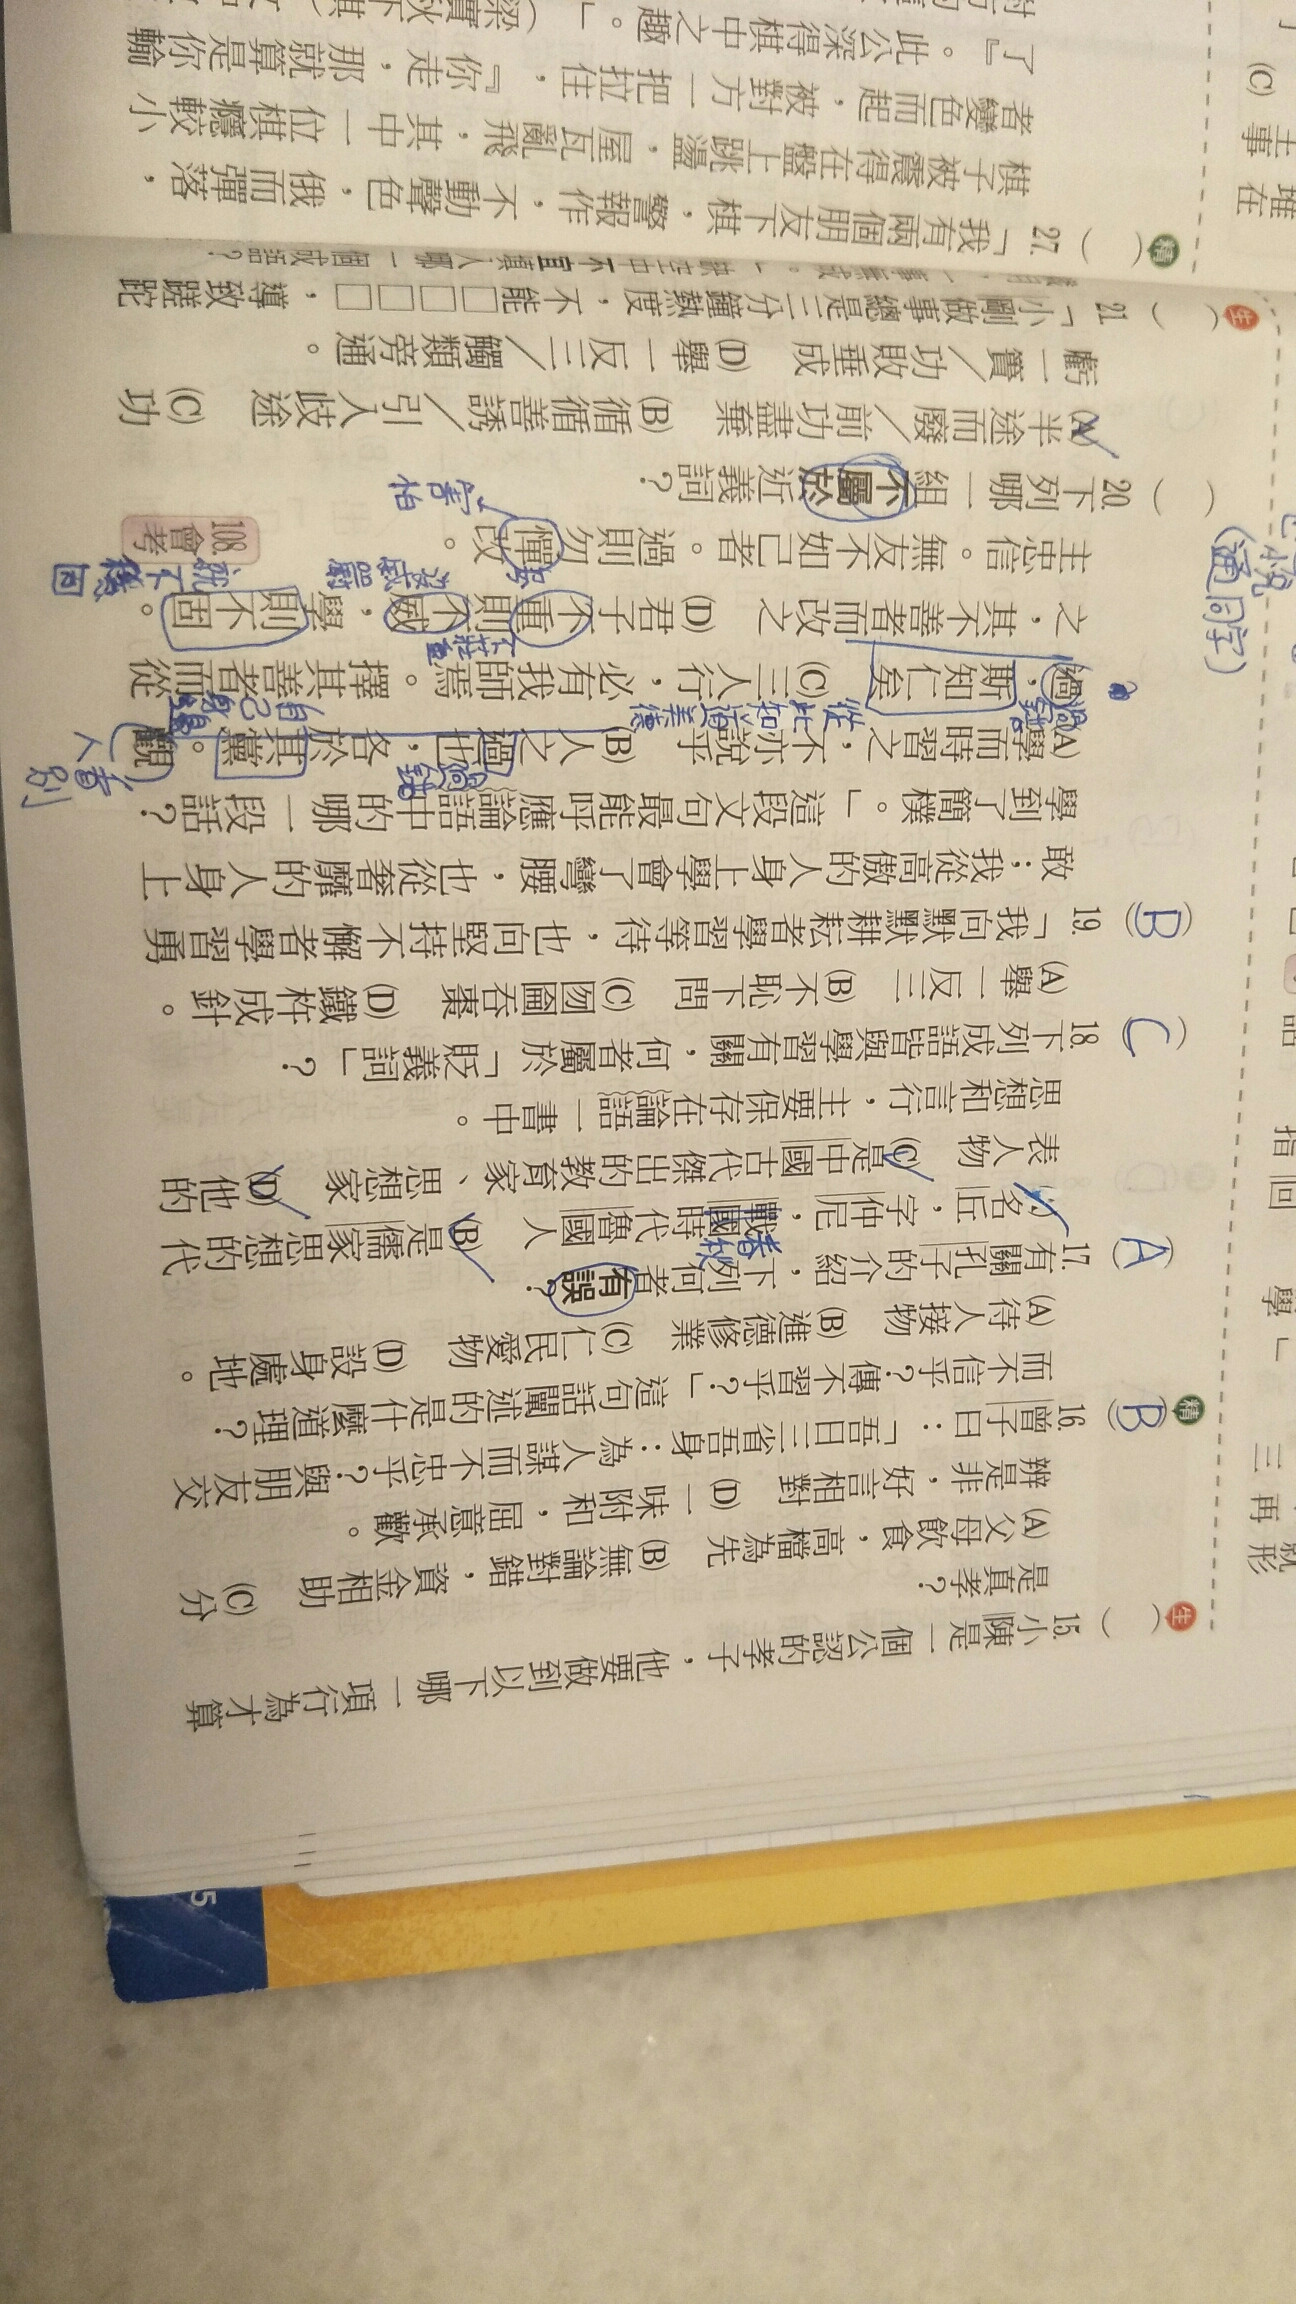 15. 小陳是一個公認的孝子，他要做到以下哪一項行為才算
是真孝？
(A)父母飲食，高檔為先　(B)無論對錯，資金相助　(C)分
辨是非，好言相對　(D)一味附和，屈意承歡。
(B) 16. 曾子曰：「吾日三省吾身：為人謀而不忠乎？與朋友交
而不信乎？傳不習乎？」這句話闡述的是什麼道理？
(A)待人接物　(B)進德修業　(C)仁民愛物　(D)設身處地。
(A) 17. 有關孔子的介紹，下列何者有誤？
(A)名丘，字仲尼，戰國時代魯國人　(B)是儒家思想的代
春秋
表人物　(C)是中國古代傑出的教育家、思想家　(D)他的
思想和言行，主要保存在論語一書中。
(C) 18. 下列成語皆與學習有關，何者屬於「貶義詞」？
(A)舉一反三　(B)不恥下問　(C)囫圇吞棗　(D)鐵杵成針。
(B) 19. 「我向默默耕耘者學習等待，也向堅持不懈者學習勇
敢；我從高傲的人身上學會了彎腰，也從奢靡的人身上
學到了簡樸。」這段文句最能呼應論語中的哪一段話？
(A)學而時習之，不亦說乎　(B)人之過也，各於其黨。觀
看別人
過，斯知仁矣　(C)三人行，必有我師焉。擇其善者而從
自己身
之，其不善者而改之　(D)君子不重則不威，學則不固。
不莊重
主忠信。無友不如己者。過則勿憚改。
害怕
108會考
20. 下列哪一組不屬於近義詞？
(A)半途而廢／前功盡棄　(B)循循善誘／引人歧途　(C)功
虧一簣／功敗垂成　(D)舉一反三／觸類旁通。
21. 「小剛做事總是三分鐘熱度，不能□□□□，導致蹉跎
27. 「我有兩個朋友下棋，警報作，不動聲色，俄而彈落，
棋子被震得在盤上跳盪，屋瓦亂飛，其中一位棋癮較小
者變色而起，被對方一把拉住，『你走，那就算是你輸
了』。此公深得棋中之趣。」
(通同字)
生
精
生
精